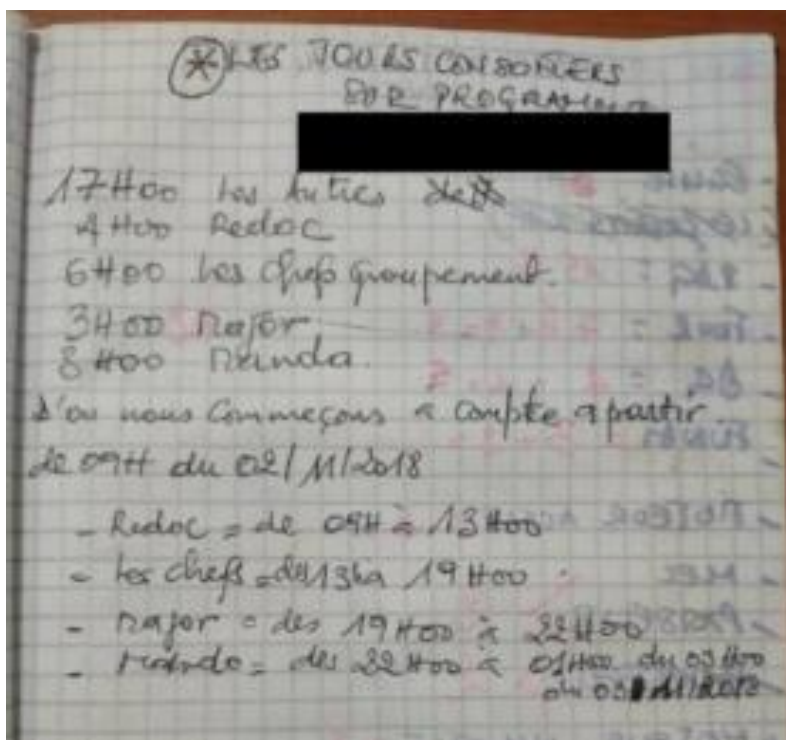 * LES JOURS CONSOMERS
SUR PROGRAMME
17H00 Les Autres
4H00 Redoc
6H00 Les Chefs groupement.
3H00 Major
8H00 Manda.
D'ou nous Commeçons a Compte a partir
de 09H du 02/11/2018
- Redoc = de 09H à 13H00
- Les chefs = des 13h à 19H00
- Major = des 19H00 à 22H00
- Mando = des 22H00 à 01H00 du 03H00
du 03 11/2018